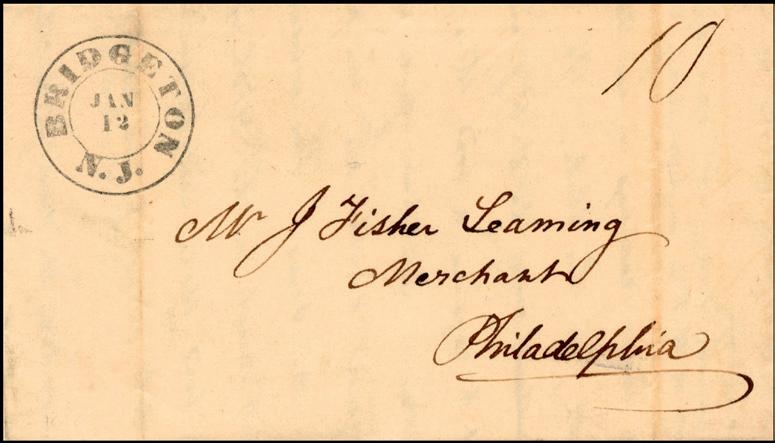 BRIDGETON
N.J.
JAN
12
10
Mr J Fisher Leaming
Merchant
Philadelphia